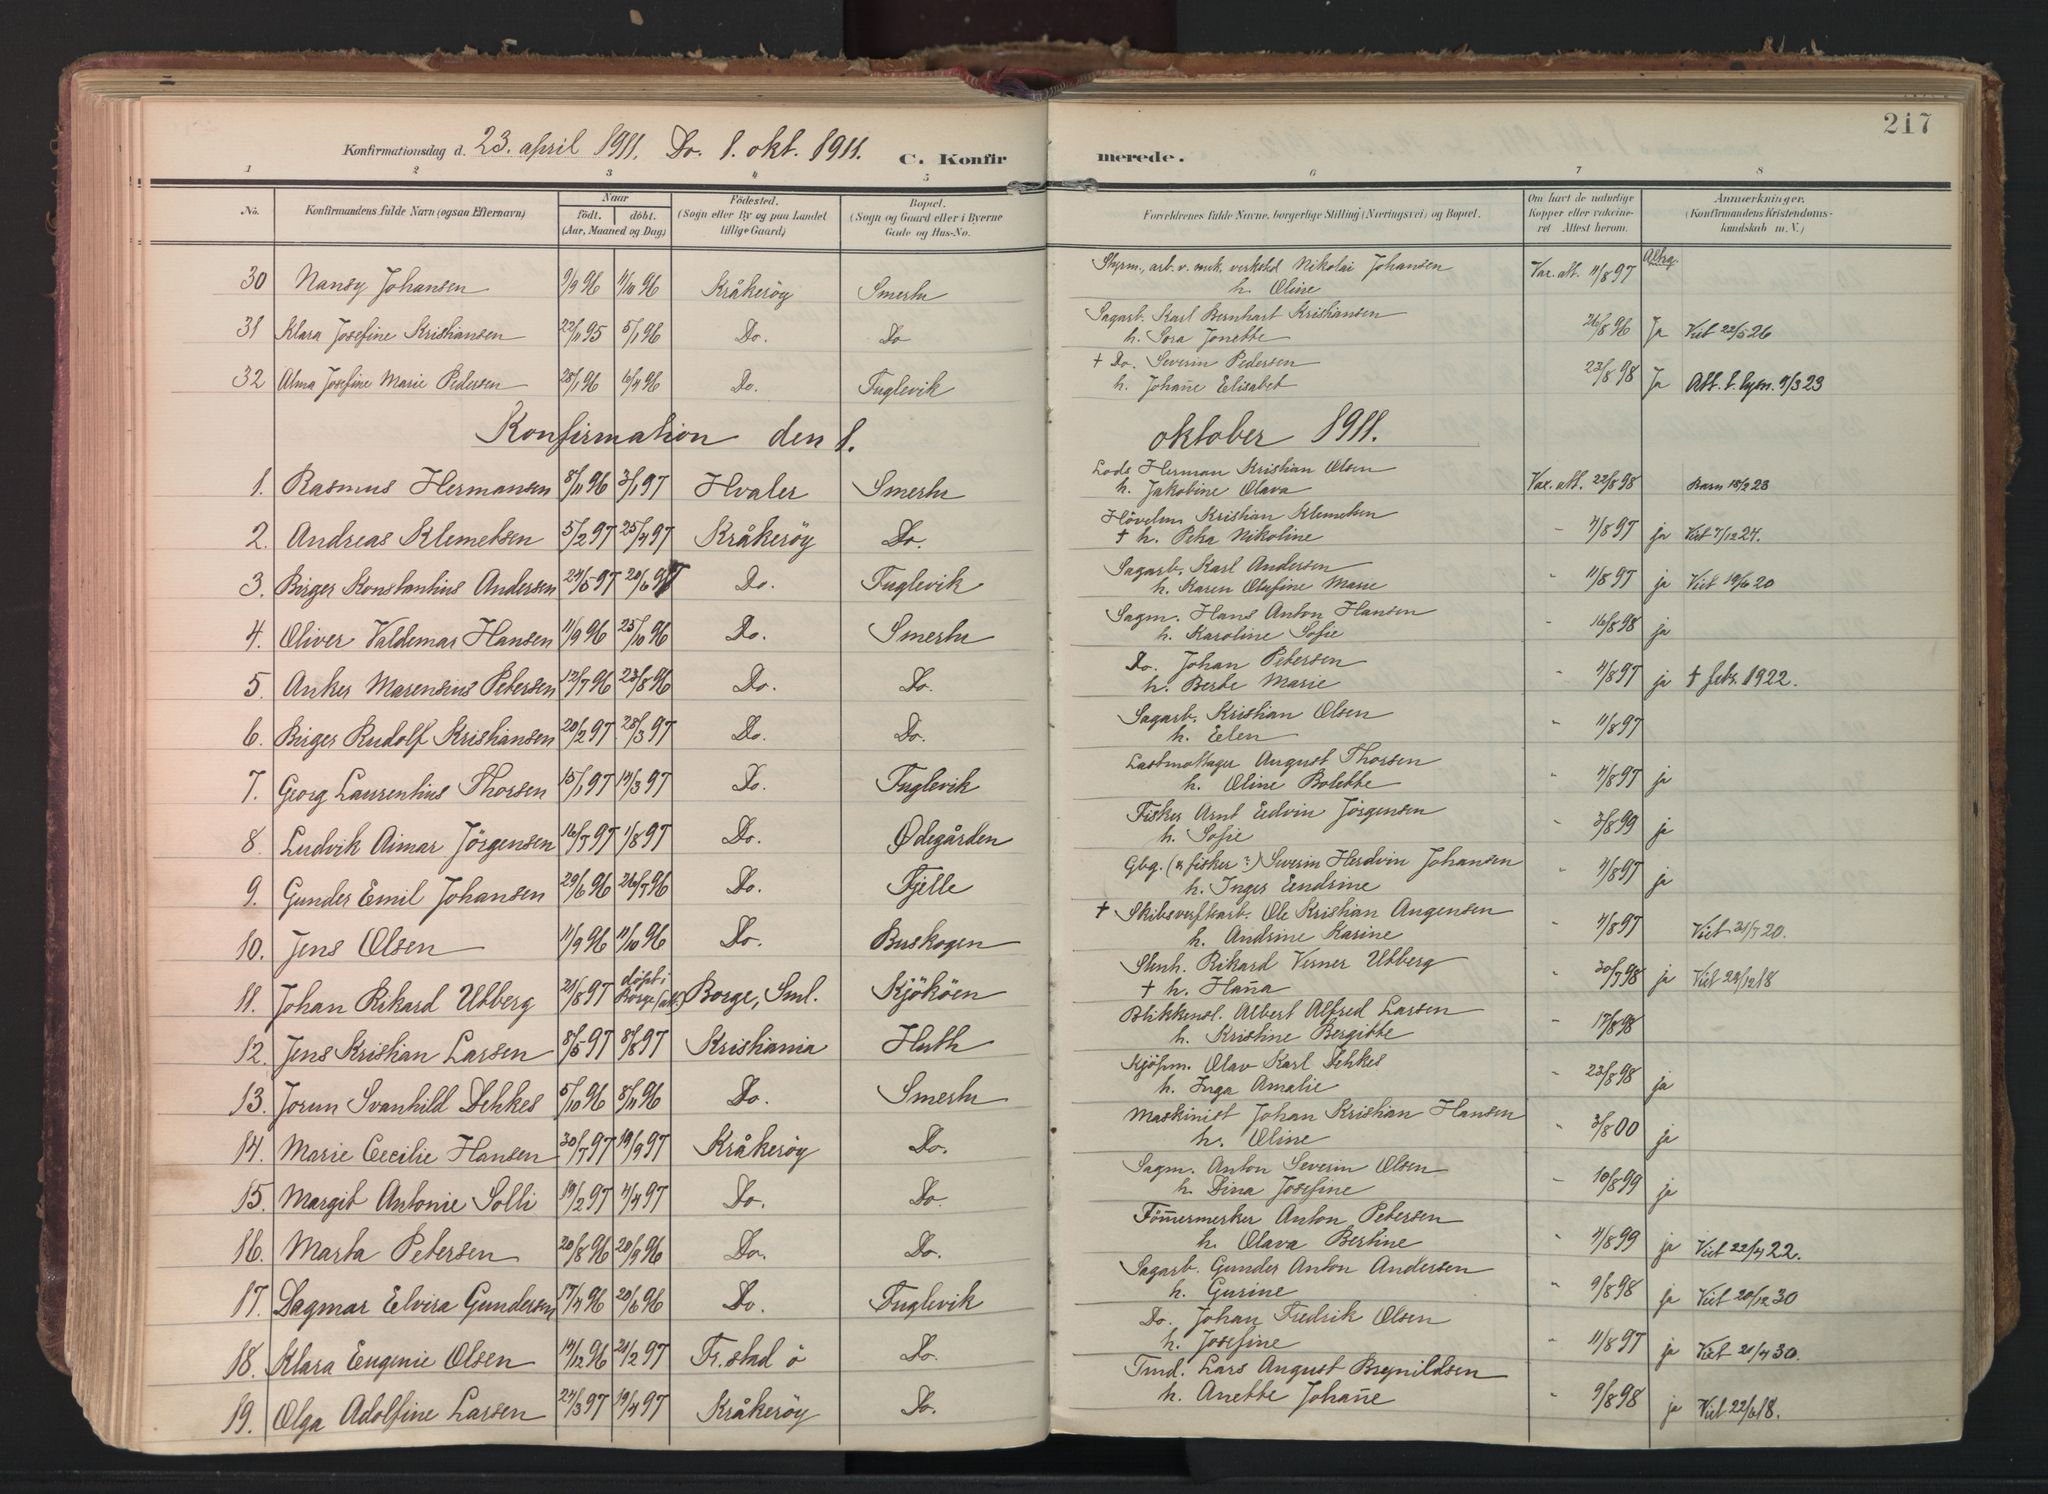 217
Konfirmationsdag d. 23. april 1911. Do. 1. okt. 1911. C. Konfirmerede.
1 2 3 4 5 6 7 8
No. Konfirmandens fulde Navn (ogsaa Efternavn) Naar født. døbt. (Aar, Maaned og Dag) Fødested. (Sogn eller By og paa Landet tillige Gaard) Bopæl. (Sogn og Gaard eller i Byerne Gade og Hus-No. Forældrenes fulde Navne, borgerlige Stilling (Næringsvei) og Bopæl. Om havt de naturlige Kopper eller vakcineret Attest herom. Anmærkninger. (Konfirmandens Kristendomskundskab m. V.)
30 Nansy Johansen 9/9 96 11/10 96 Kråkeröy Smertu Styrm., arb. v. mek. verksted Nikolai Johansen Vax. att. 11/8 97
h. Oline
31 Klara Josefine Kristiansen 22/11 95 5/1 96 Do. Do Sagarb. Karl Bernhart Kristiansen 26/8 96 Ja Viet 22/5 26
h. Tora Jonette
32 Alma Josefine Marie Pedersen 28/1 96 6/4 96 Do. Fuglevik † Do. Severin Pedersen 23/8 98 Ja Att. t. lysn. 9/3 23
h. Johanne Elisabet
Konfirmation den 1. oktober 1911.
1. Rasmus Hermansen 8/11 96 3/1 97 Hvaler Smertu Lods Herman Kristian Olsen Vax. att. 22/8 98 Barn 18/2 23
h. Jakobine Olava
2. Andreas Klemetsen 5/2 97 25/4 97 Kråkeröy Do. Hövelm. Kristian Klemetsen " 4/8 97 ja Viet 7/12 24.
† h. Petra Nikoline
3. Birger Konstantius Andersen 24/5 97 20/6 97 Do. Fuglevik Sagarb. Karl Andersen " 11/8 97 ja Viet 19/6 20
h. Karen Olufine Marie
4. Oliver Valdemar Hansen 11/9 96 25/10 96 Do. Smertu Sagm. Hans Anton Hansen " 16/8 98 ja
h. Karoline Sofie
5. Anker Marensius Petersen 12/7 96 23/8 96 Do. Do. Do. Johan Petersen " 4/8 97 ja † febr. 1922.
h. Berte Marie
6. Birger Rudolf Kristiansen 20/2 97 28/3 97 Do. Do. Sagarb. Kristian Olsen " 11/8 97
h. Elen
7. Georg Laurentius Thorsen 15/1 97 14/3 97 Do. Fuglevik Lastmottager August Thorsen " 4/8 97 ja
h. Oline Bolette
8. Ludvik Aimar Jörgensen 16/7 97 1/8 97 Do. Ødegården Fisker Arnt Edvin Jörgensen " 3/8 99 ja
h. Sofie
9. Gunder Emil Johansen 29/6 96 26/7 96 Do. Fjelle Gbg. (n. fisker?) Severin Herdvin Johansen " 4/8 97 ja
h. Inger Eendrine
10. Jens Olsen 11/9 96 11/10 96 Do. Buskogen † Skibsverftarb. Ole Kristian Angensen " 4/8 97 Viet 21/7 20.
h. Andrine Karine
11. Johan Rikard Utberg 21/8 97 döpt i Borge (att.) Borge, Sml. Kjökøen Stenh. Rikard Verner Utberg " 30/7 98 ja Viet 29/12 18
† h. Hanna
12. Jens Kristian Larsen 8/5 97 8/8 97 Kristiania Huth Blikkensl. Albert Alfred Larsen " 17/8 98
h. Kristine Bergitte
13. Jorun Svanhild Dehkes 5/10 96 8/11 96 Do. Smertu Kjöpm. Olav Karl Dehkes " 23/8 98 ja
h. Inga Amalie
14. Marie Cecilie Hansen 30/7 97 19/9 97 Kråkeröy Do. Maskinist Johan Kristian Hansen " 3/8 00 ja
h. Oline
15. Margit Antonie Solli 19/2 97 4/4 97 Do. Do. Sagm. Anton Severin Olsen " 10/8 99 ja
h. Dina Josefine
16. Marta Petersen 20/8 96 20/9 96 Do. Do. Tömmermerker Anton Petersen " 4/8 99 ja Viet 22/4 22.
h. Olava Bertine
17. Dagmar Elvira Gundersen 17/4 96 20/6 96 Do. Fuglevik Sagarb. Gunder Anton Andersen " 9/8 98 ja Viet 20/12 30
h. Gurine
18. Klara Eugenie Olsen 19/12 96 21/2 97 Fr.stad ö Do. Do. Johan Fredrik Olsen " 11/8 97 ja Viet 21/4 30.
h. Josefine
19. Olga Adolfine Larsen 24/3 97 19/4 97 Kråkeröy Do. Tmd. Lars August Brynildsen " 9/8 98 ja Viet 22/6 18.
h. Anette Johanne